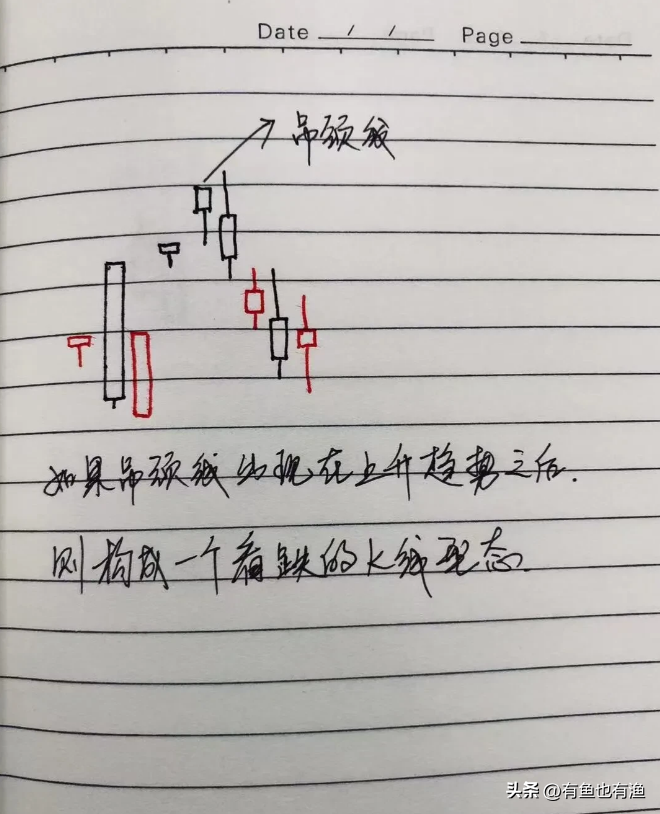 Date / / Page
吊颈线
如果吊颈线出现在上升趋势之后.
则构成一个看跌的K线型态.
头条 @有鱼也有渔